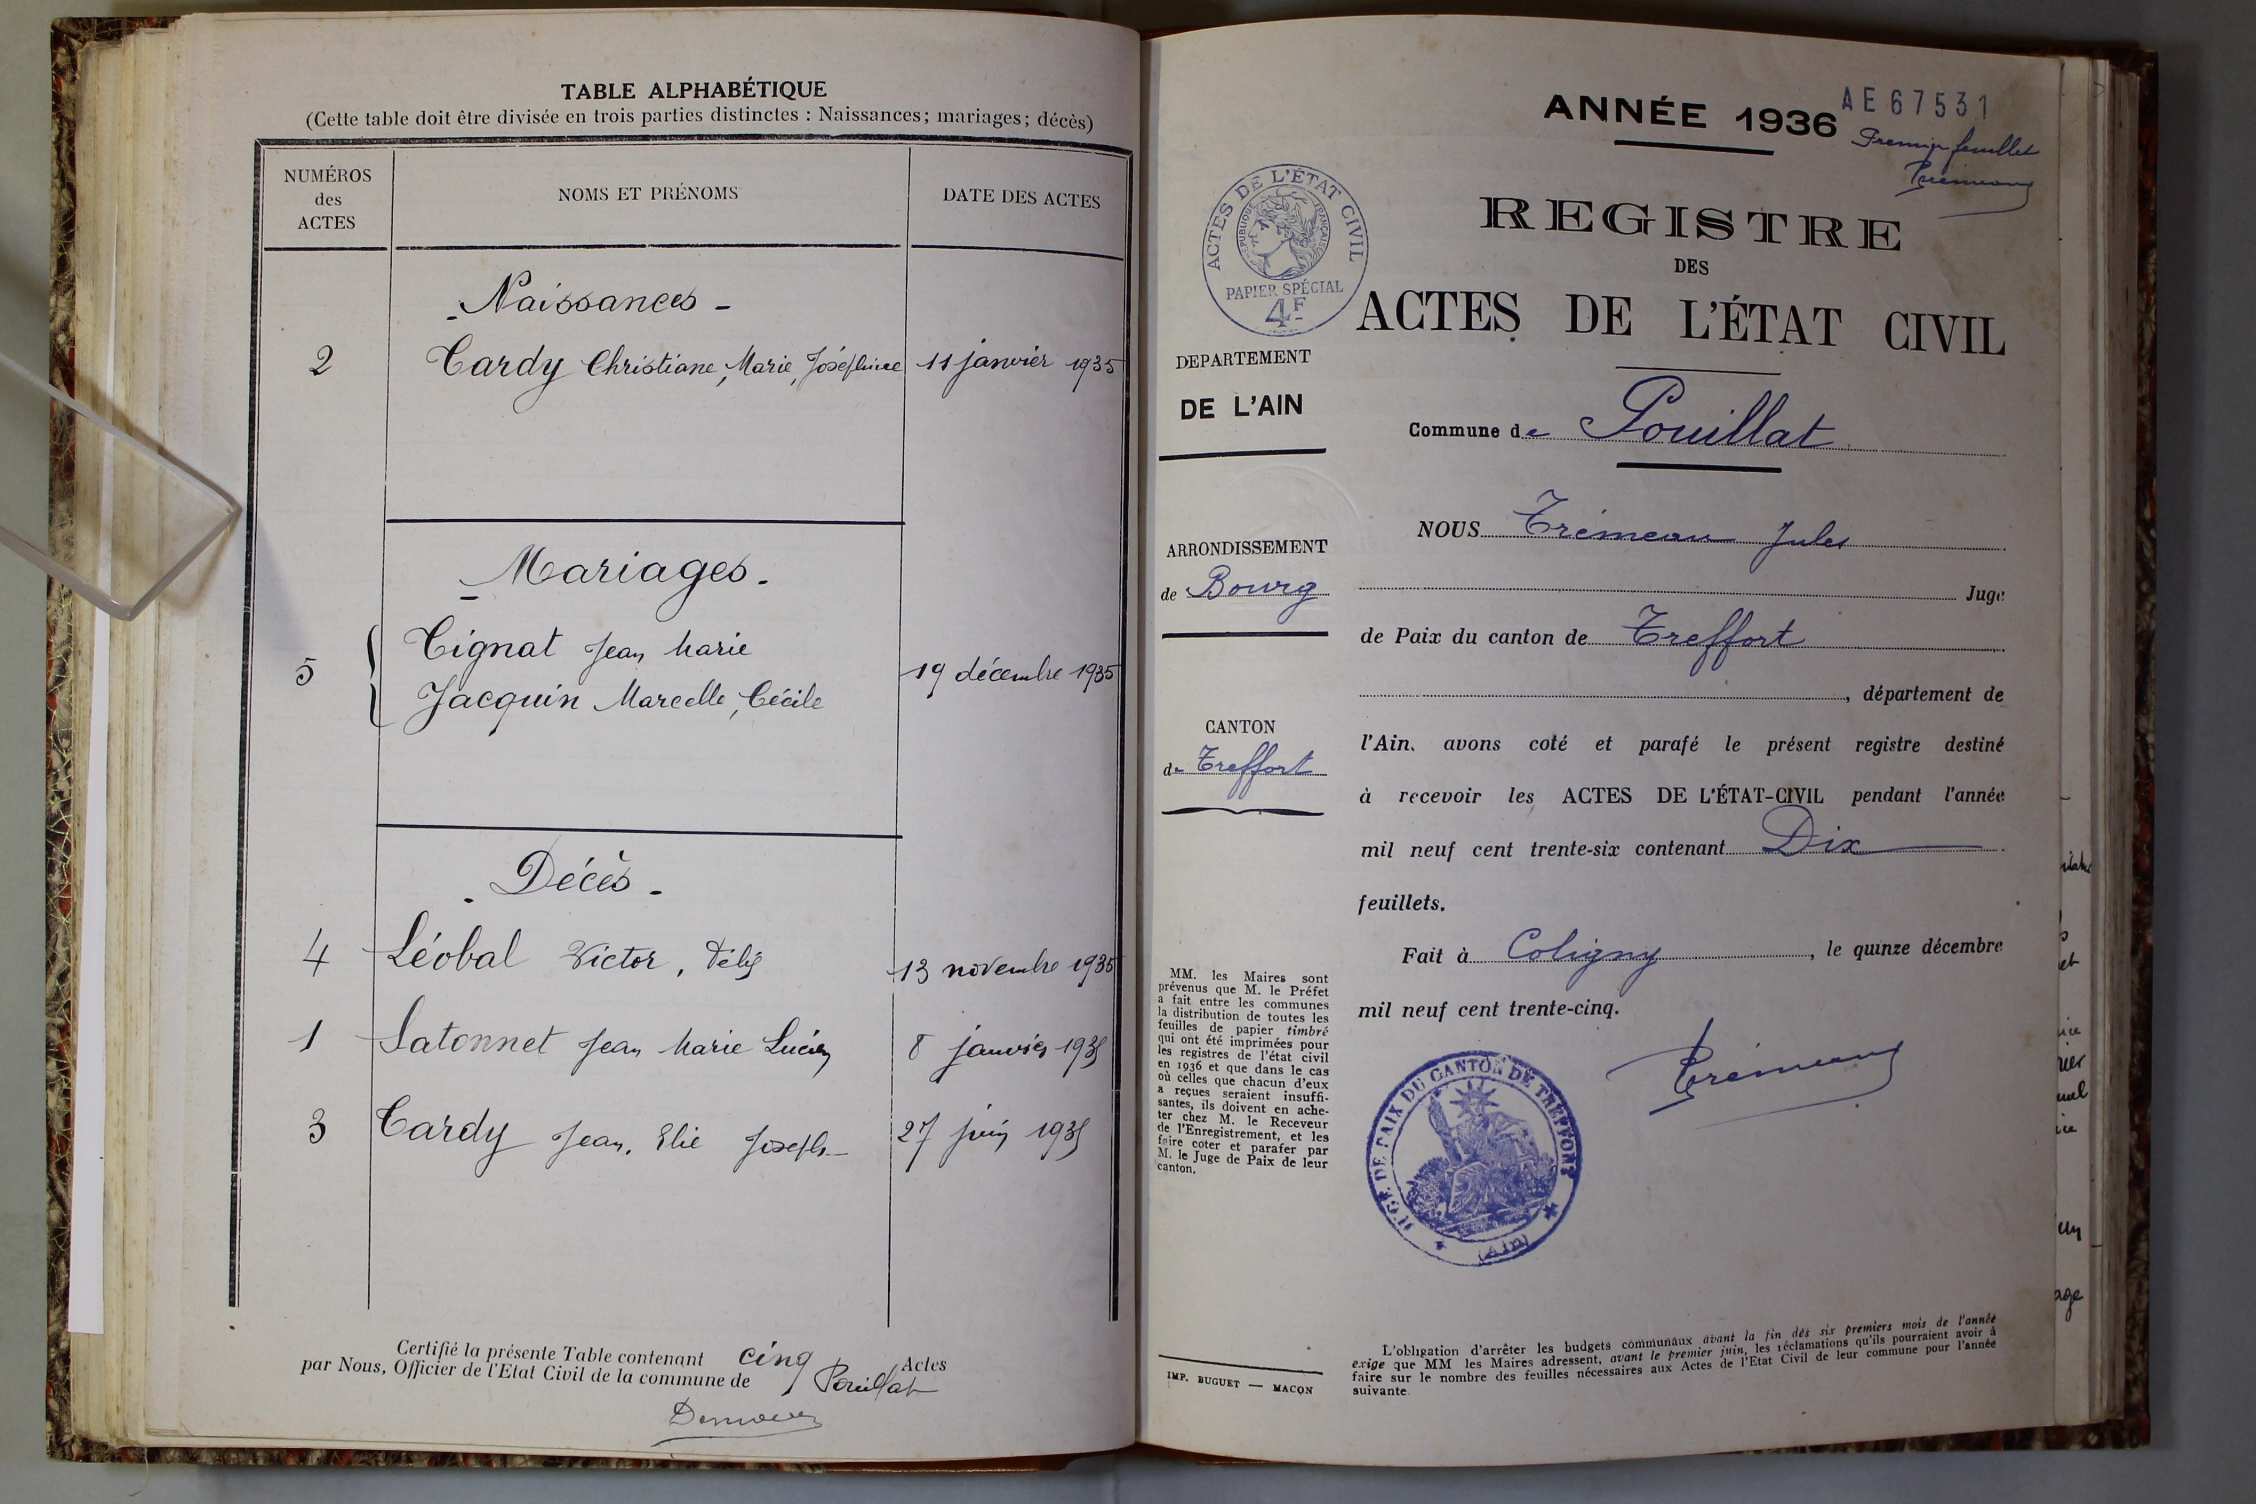 TABLE ALPHABÉTIQUE
(Cette table doit être divisée en trois parties distinctes : Naissances; mariages; décès)
NUMÉROS
des
ACTES
NOMS ET PRÉNOMS
DATE DES ACTES
Naissances -
2 Tardy Christiane, Marie, Joséphine 11 janvier 1935
Mariages -
Tignat Jean Marie
5 19 décembre 1935
Jacquin Marcelle, Cécile
Décès -
4 Léobal Victor, 13 novembre 1935
1 Satonnet Jean Marie Lucien 8 janvier 1935
3 Tardy Jean, Elie Joseph 27 juin 1935
Certifié la présente Table contenant cinq Actes
par Nous, Officier de l'Etat Civil de la commune de Pouillat
ANNÉE 1936
AE67531
Premier feuillet
Trémeau
REGISTRE
DES
ACTES DE L'ÉTAT CIVIL
ACTES DE L'ÉTAT CIVIL
RÉPUBLIQUE FRANÇAISE
PAPIER SPÉCIAL
4F
DEPARTEMENT
DE L'AIN
ARRONDISSEMENT
de Bourg
CANTON
de Treffort
MM. les Maires sont
prévenus que M. le Préfet
a fait entre les communes
la distribution de toutes les
feuilles de papier timbré
qui ont été imprimées pour
les registres de l'état civil
en 1936 et que dans le cas
où celles que chacun d'eux
a reçues seraient insuffi-
santes, ils doivent en ache-
ter chez M. le Receveur
de l'Enregistrement, et les
faire coter et parafer par
M. le Juge de Paix de leur
canton.
IMP. BUGUET — MACON
Commune de Pouillat
NOUS Trémeau Jules
Juge
de Paix du canton de Treffort
, département de
l'Ain, avons coté et parafé le présent registre destiné
à recevoir les ACTES DE L'ÉTAT-CIVIL pendant l'année
mil neuf cent trente-six contenant Dix
feuillets.
Fait à Coligny, le quinze décembre
mil neuf cent trente-cinq.
Trémeau
JUGE DE PAIX DU CANTON DE TREFFORT
(Ain)
L'obligation d'arrêter les budgets communaux avant la fin des six premiers mois de l'année
exige que MM les Maires adressent, avant le premier juin, les réclamations qu'ils pourraient avoir à
faire sur le nombre des feuilles nécessaires aux Actes de l'Etat Civil de leur commune pour l'année
suivante